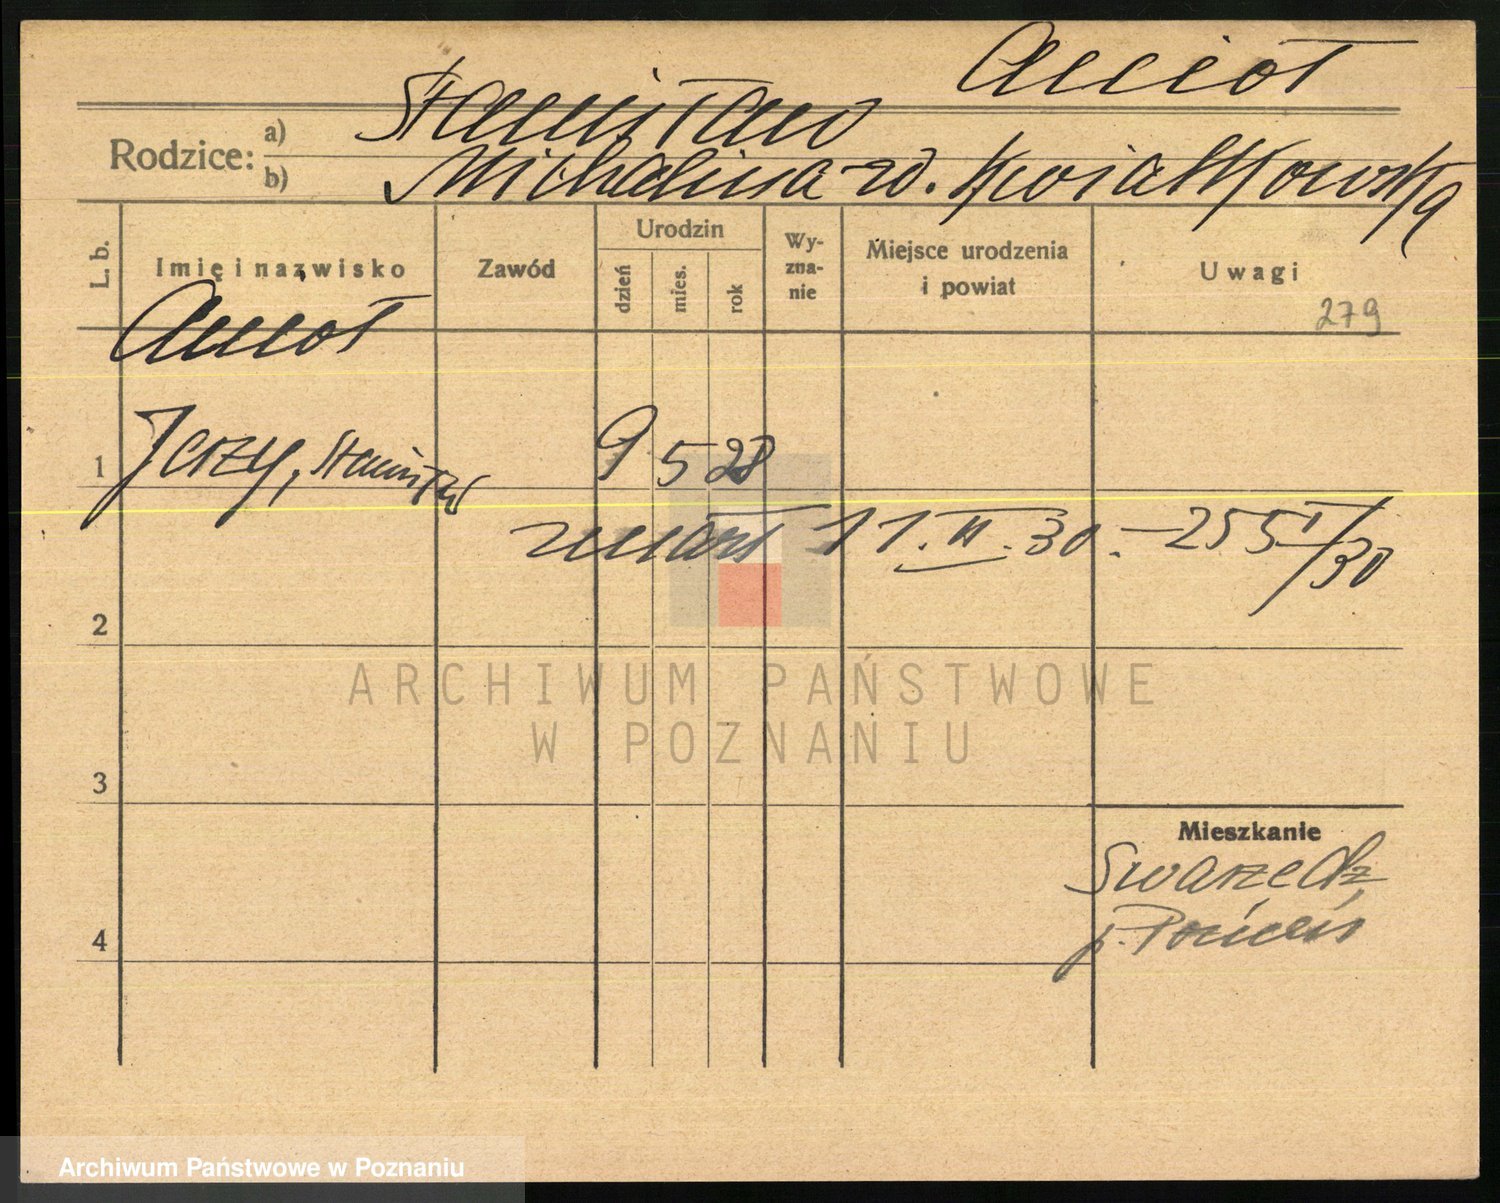 Anioł
Rodzice:
a) Stanisław
b) Michalina zd. Kwiatkowska
L. b.
Imię i nazwisko
Zawód
Urodzin
dzień
mies.
rok
Wy-
zna-
nie
Miejsce urodzenia
i powiat
Uwagi
279
Anioł
1 Jerzy, Stanisław 9 5 28
zmarł 11. VI. 30. – 255/30
2
3
4
Mieszkanie
Swarzędz
p. Poznań
ARCHIWUM PAŃSTWOWE
W POZNANIU
Archiwum Państwowe w Poznaniu